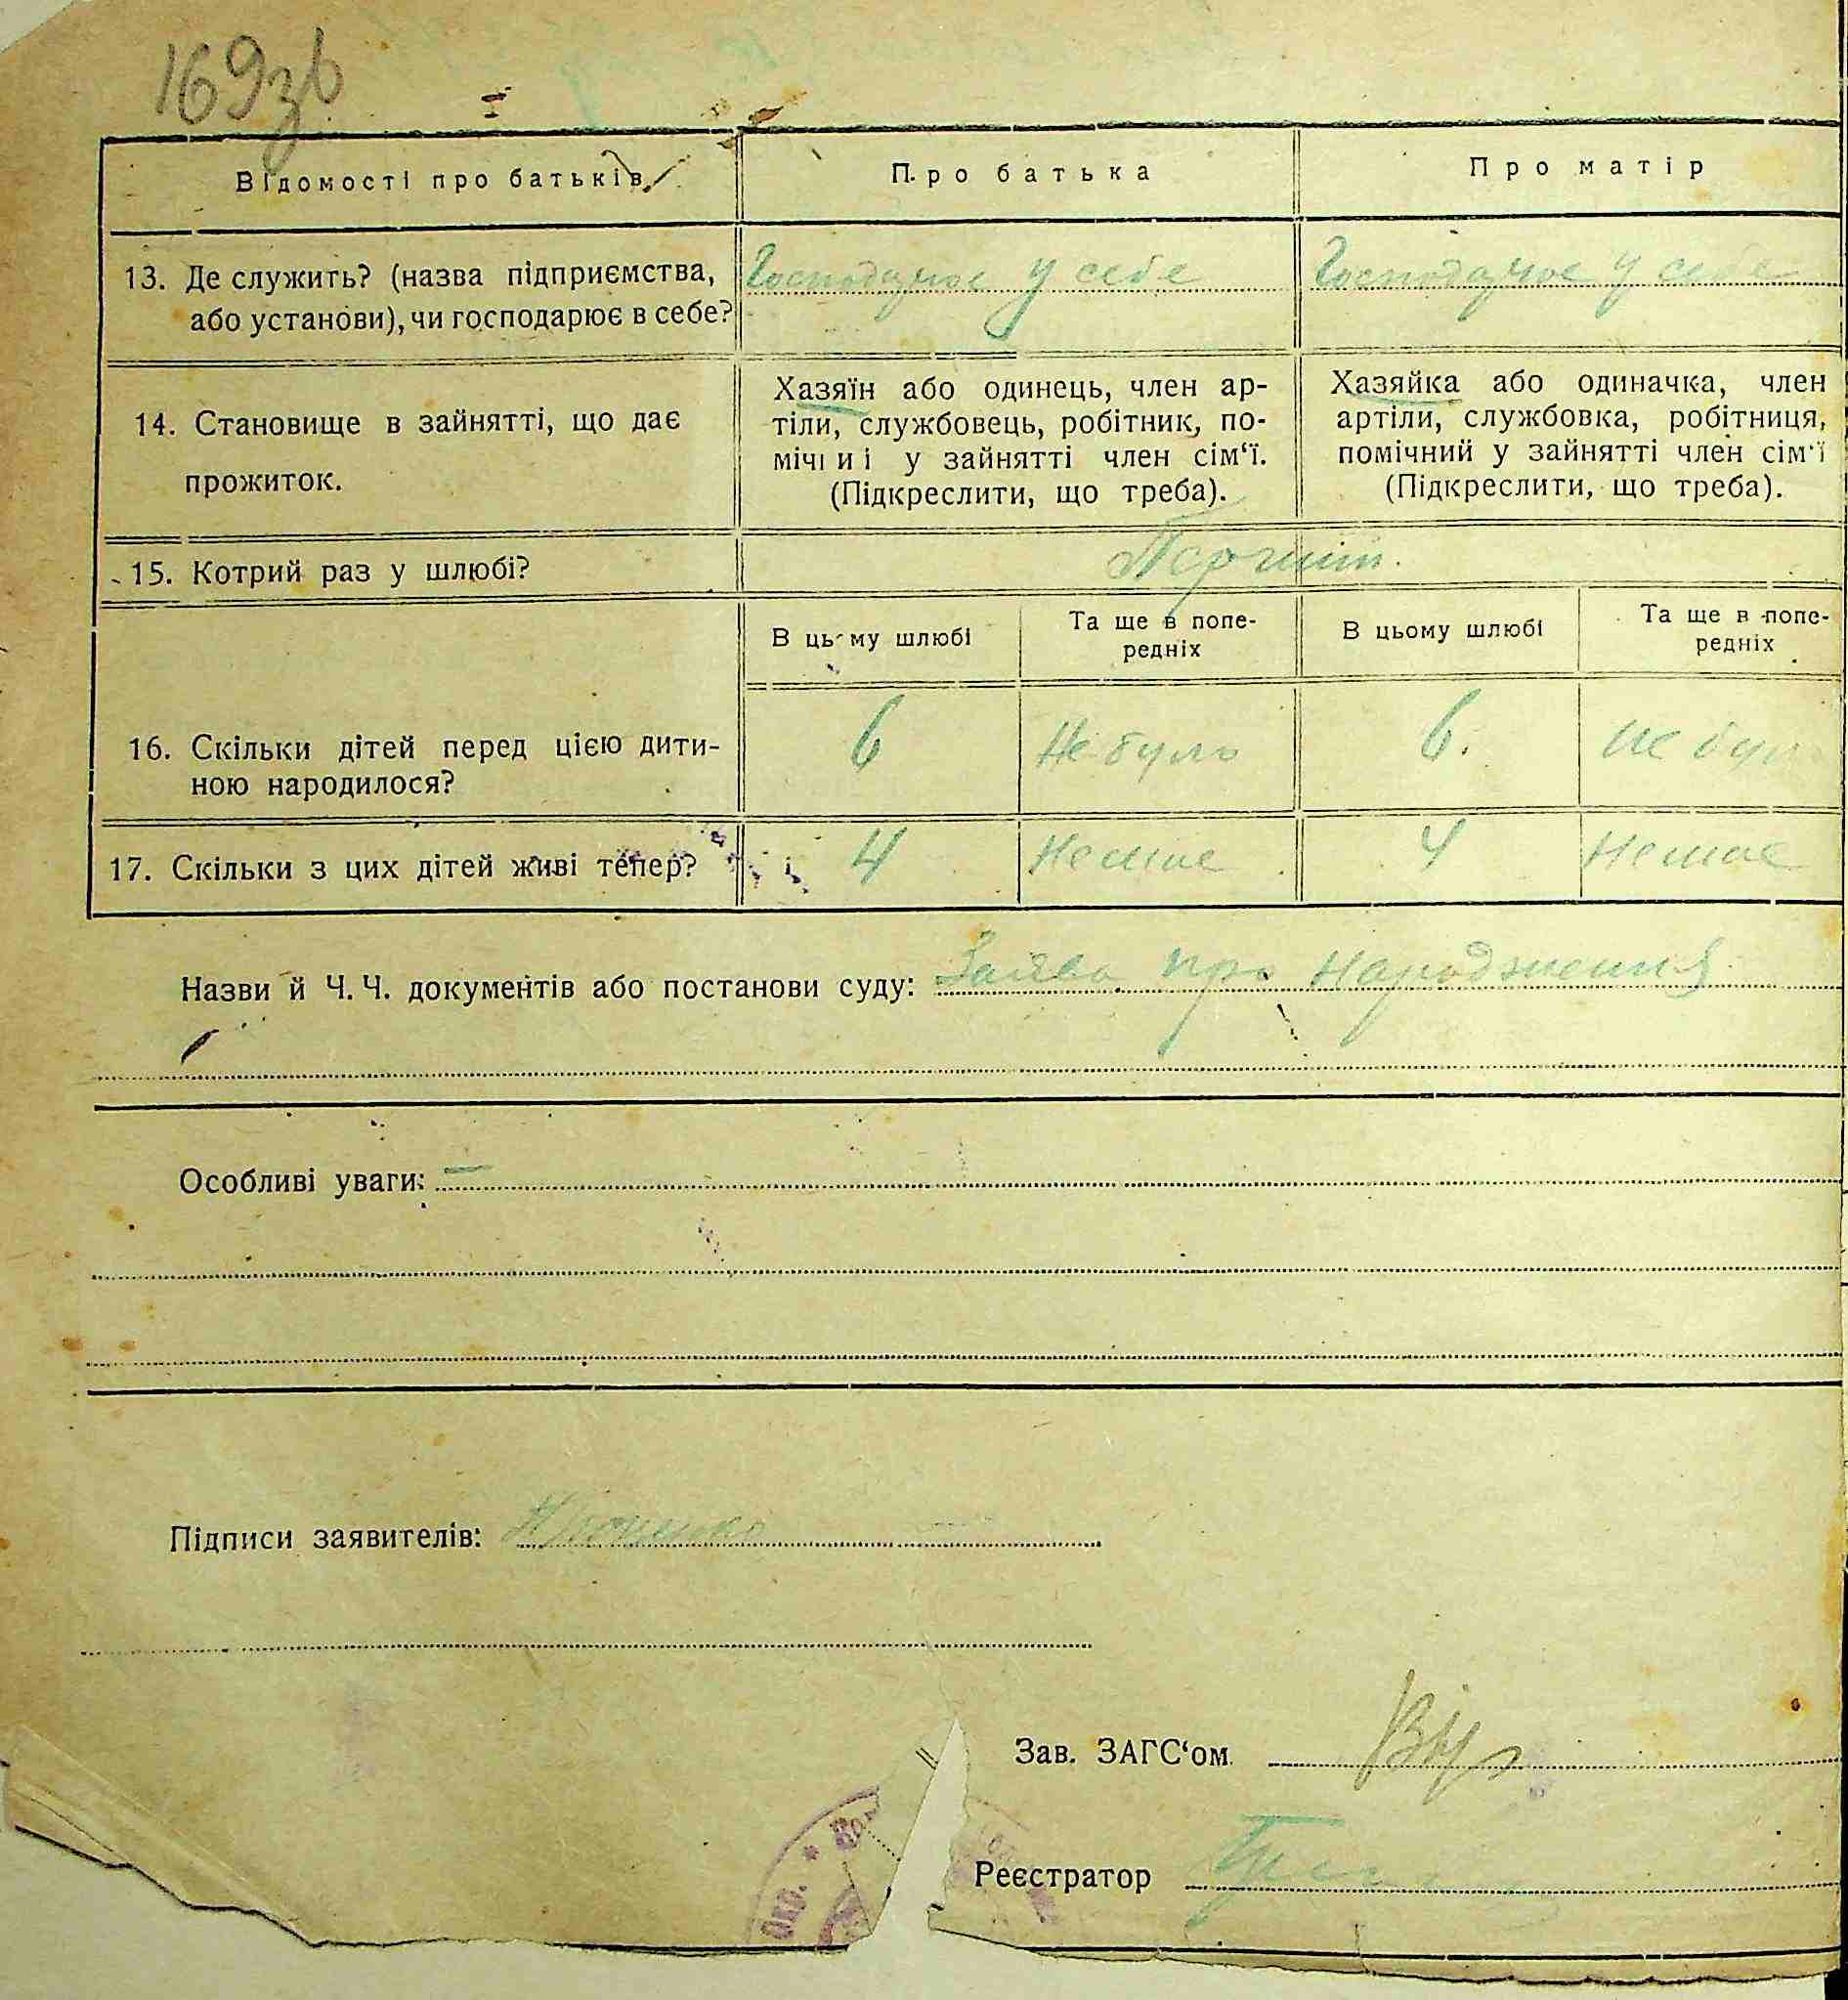 169зв
Відомості про батьків
Про батька
Про матір
13. Де служить? (назва підприємства,
або установи), чи господарює в себе?
Господарює у себе
Господарює у себе
14. Становище в зайнятті, що дає
прожиток.
Хазяїн або одинець, член ар-
тіли, службовець, робітник, по-
мічний у зайнятті член сім‘ї.
(Підкреслити, що треба).
Хазяйка або одиначка, член
артіли, службовка, робітниця,
помічний у зайнятті член сім‘ї
(Підкреслити, що треба).
15. Котрий раз у шлюбі?
Перший.
В цьому шлюбі
Та ще в попе-
редніх
В цьому шлюбі
Та ще в попе-
редніх
16. Скільки дітей перед цією дити-
ною народилося?
6
Не було
6.
Не було
17. Скільки з цих дітей живі тепер?
4
Немає
4
Немає
Назви й Ч. Ч. документів або постанови суду: Заява про народження
Особливі уваги: —
Підписи заявителів:
Зав. ЗАГС‘ом
Реєстратор
ОКР. *